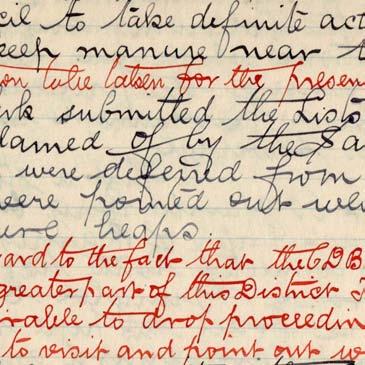 cil to take definite act
keep manure near t
on to be taken for the presen
erk submitted the Lists
lamed of by the Sa
were deferred from
were pointed out we
ure heaps.
gard to the fact that the C D B
greater part of this District
irable to drop proceedin
to visit and point out w